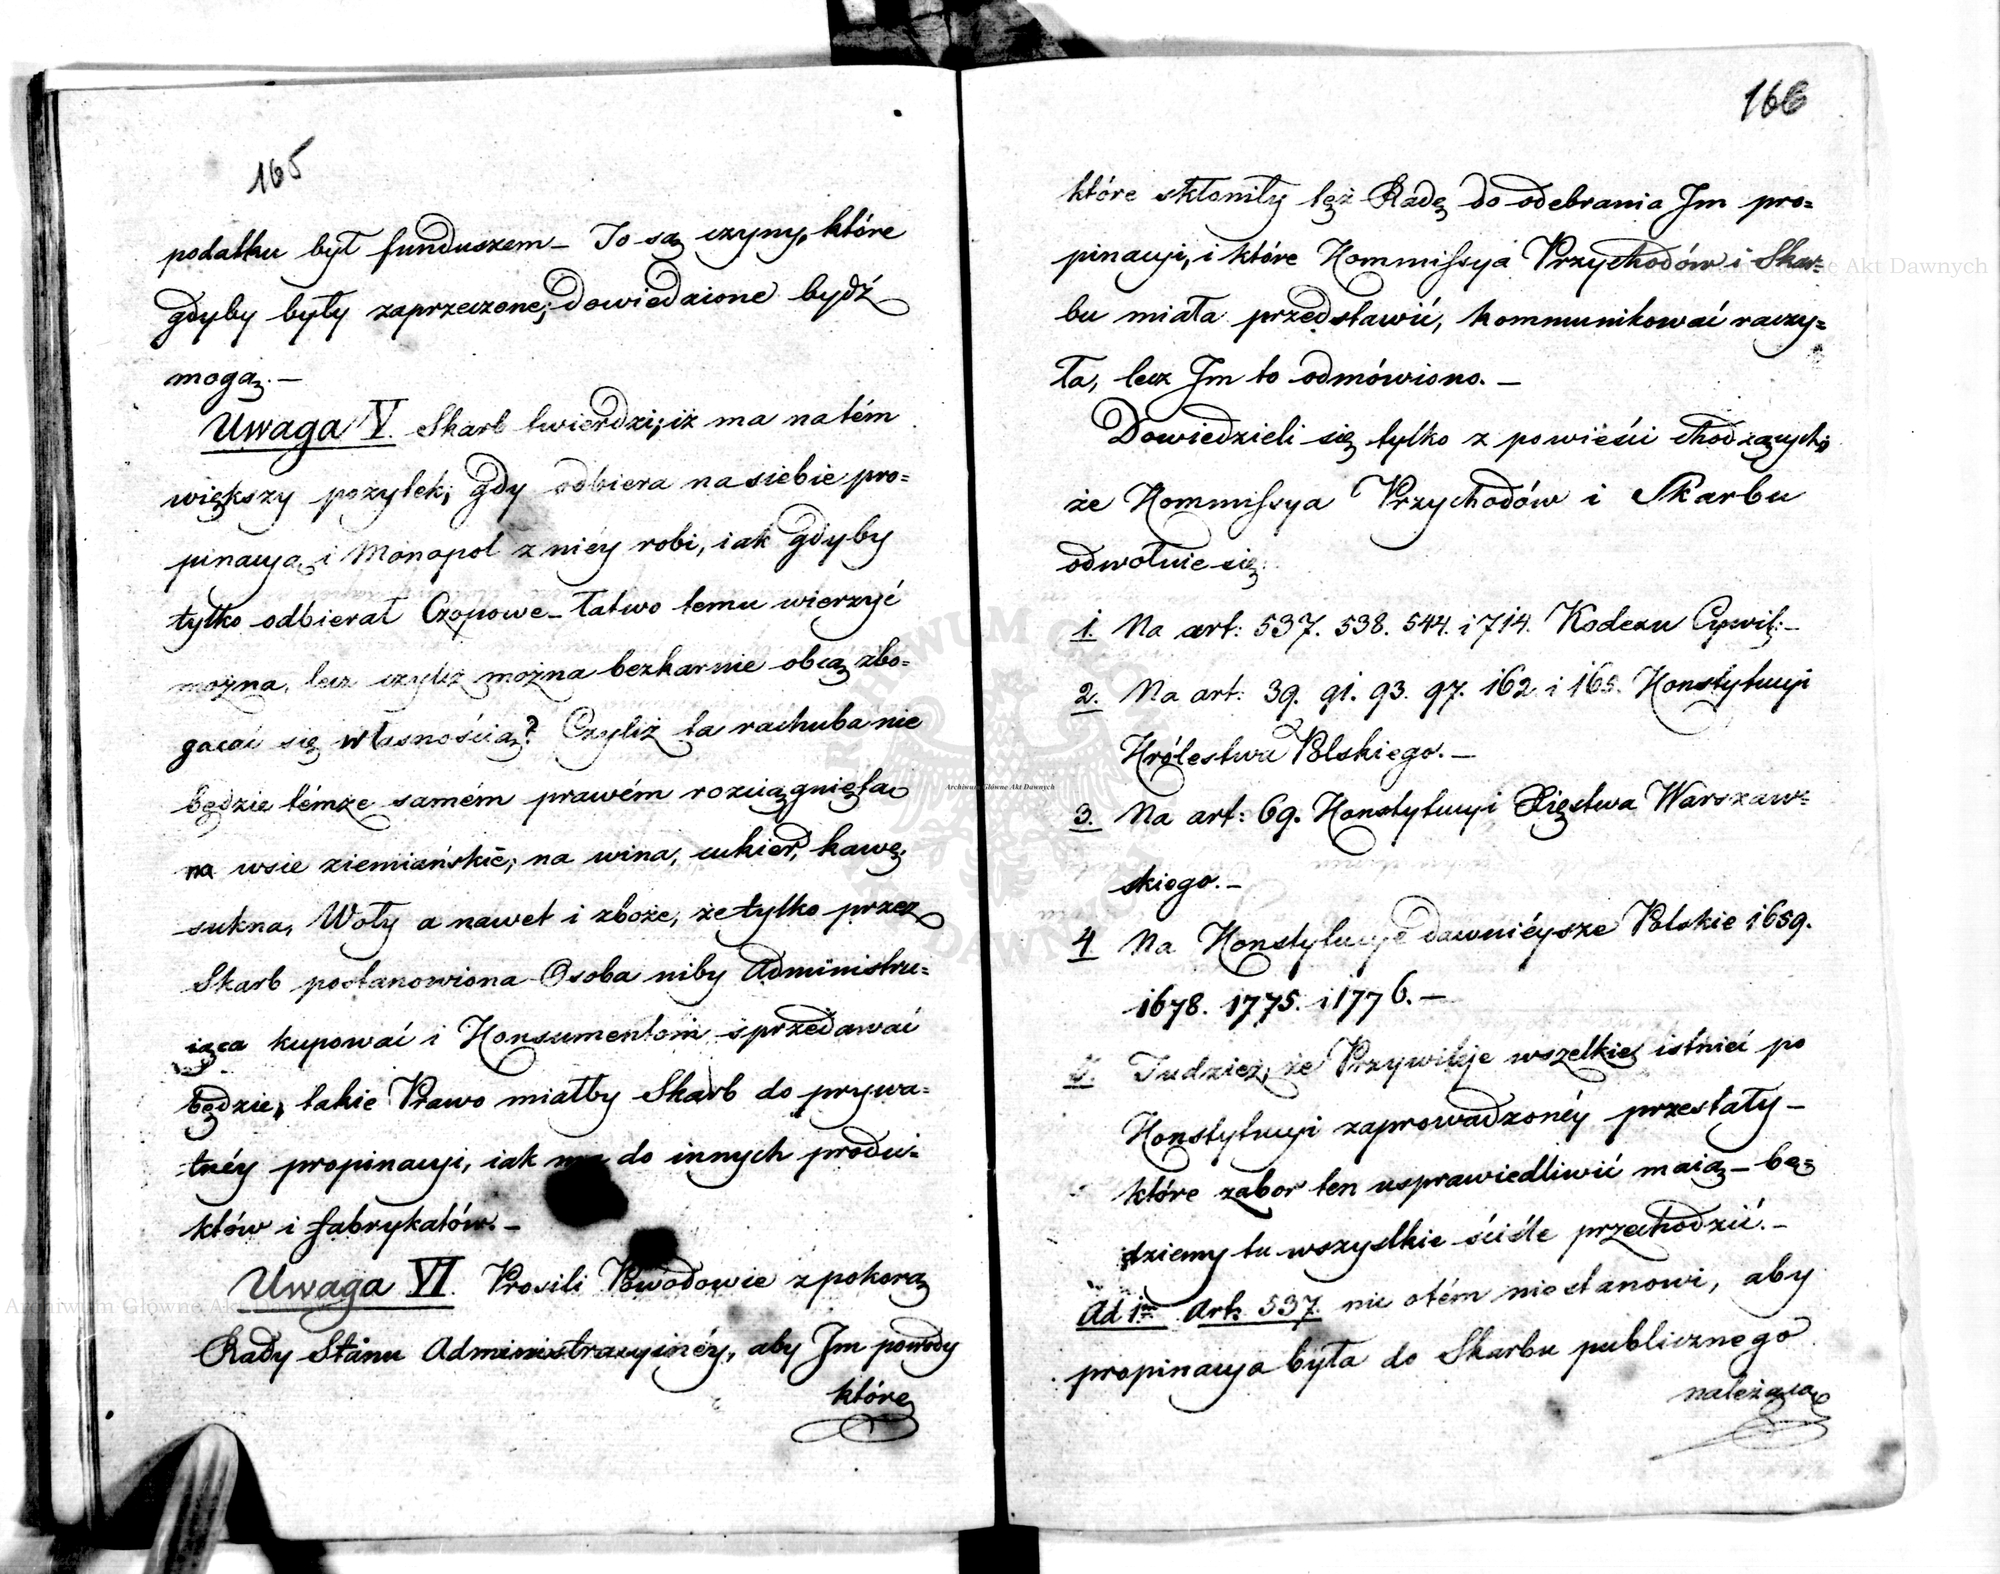 165
podatku był funduszem – To są czyny, które
gdyby były zaprzeczone, dowiedzione bydź
mogą. –
Uwaga V. Skarb twierdzi, iż ma na tém
większy pożytek, gdy odbiera na siebie pro=
pinacyą i Monopol z niéy robi, iak gdyby
tylko odbierał Czopowe – łatwo temu wierzyć
można, lecz czyliż można bezkarnie obcą zbo=
gacać się własnością? Czyliż ta rachuba nie
będzie témże samém prawém rozciągnięta
na wsie ziemiańskie, na wina, cukier, kawę,
sukna, Woły a nawet i zboże, że tylko przez
Skarb postanowiona Osoba niby Administru=
iąca kupować i Konsumentom sprzedawać
będzie, takie Prawo miałby Skarb do prywa=
tnéy propinacyi, iak ma do innych produ=
któw i fabrykatów. –
Uwaga VI. Prosili Powodowie z pokorą
Rady Stanu Administracyinéy, aby Im powody
które
166
które skłoniły tęż Radę do odebrania Im pro=
pinacyi, i które Kommissya Przychodów i Skar=
bu miała przedstawić, kommunikować raczy=
ła, lecz Im to odmówiono. –
Dowiedzieli się tylko z powieści chodzących,
że Kommissya Przychodów i Skarbu
odwołuie się:
1. Na art: 537. 538. 544. i 714. Kodexu Cywil: –
2. Na art: 39. 91. 93. 97. 162 i 165. Konstytucyi
Królestwa Polskiego. –
3. Na art: 69. Konstytucyi Xięstwa Warszaw=
skiego. –
4 Na Konstytucye dawniéysze Polskie 1659.
1678. 1775. i 1776. –
5. Tudzież, że Przywileje wszelkie istnieć po
Konstytucyi zaprowadzonéy przestały –
które zabor ten usprawiedliwić maią – bę=
dziemy tu wszystkie ściśle przechodzić. –
Ad 1m Art. 537. nic o tém nie stanowi, aby
propinacya była do Skarbu publicznego
należąca
Archiwum Główne Akt Dawnych